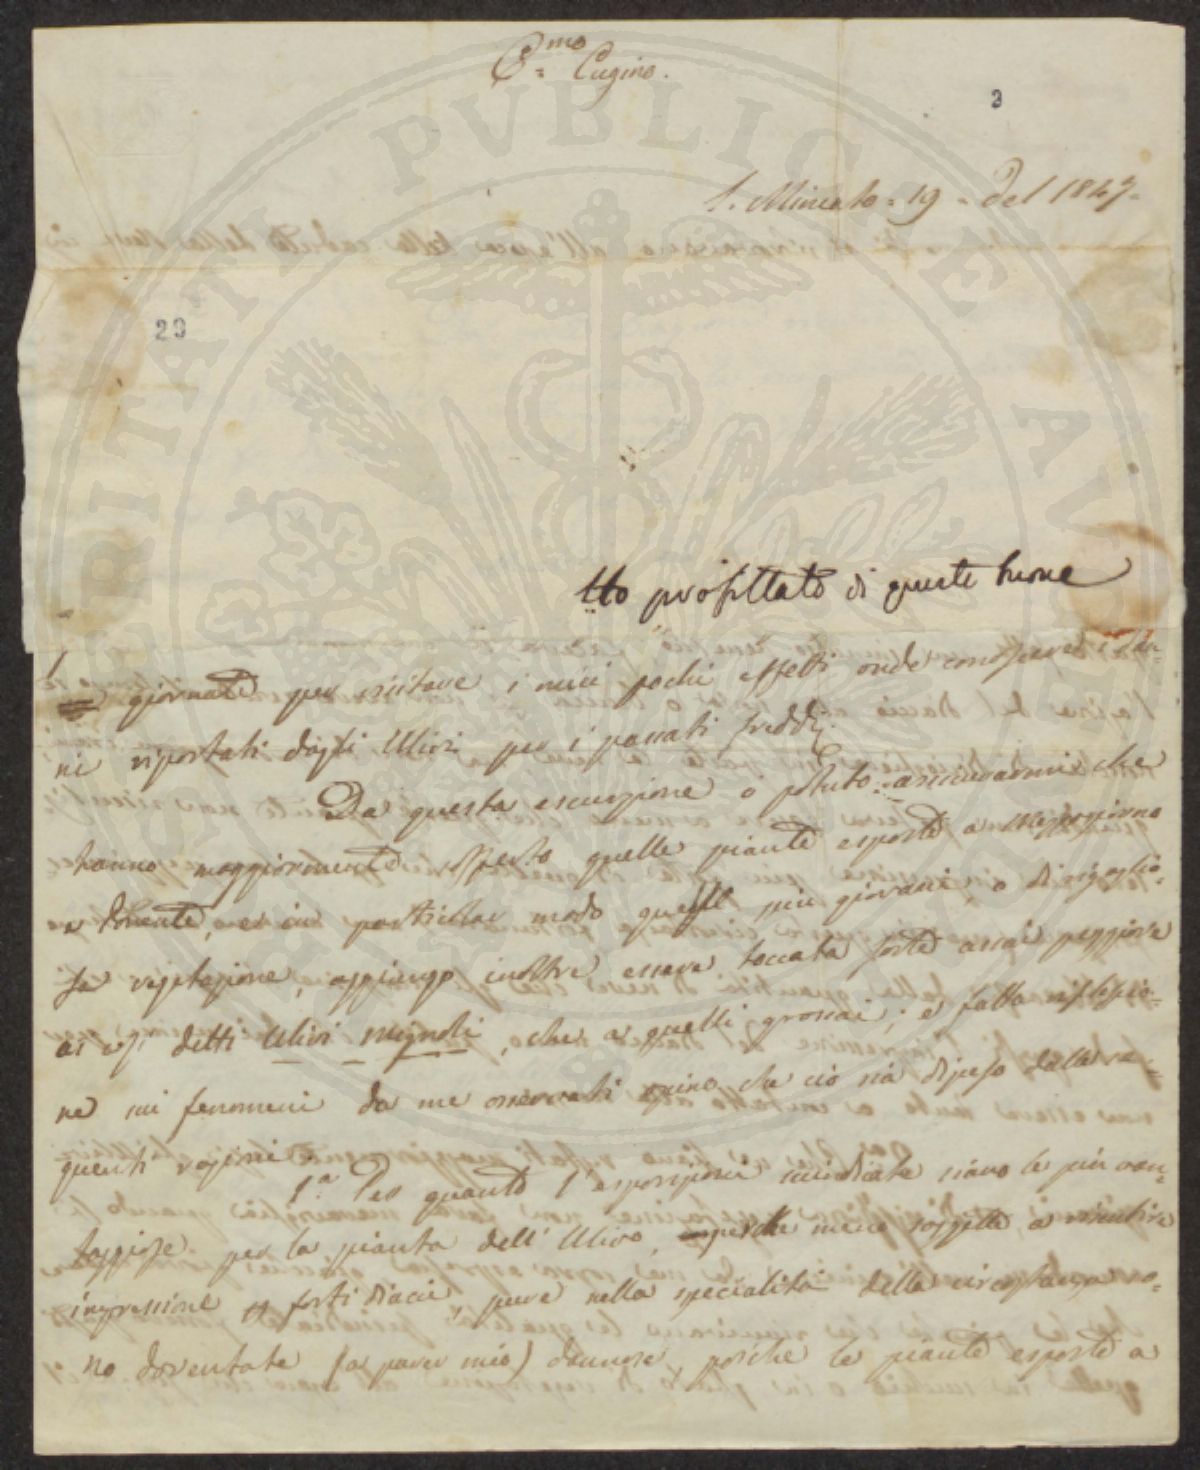 C.mo Cugino.
3
S. Miniato = 19 = del 1847 =
20
Ho profittato di queste buone
giornate per visitare i miei pochi effetti onde conoscere i dan=
ni riportati dagli Ulivi per i passati freddi.
Da questa escurzione o potuto assicurarmi che
hanno maggiormente sofferto quelle piante esposte a mezzogiorno
e Ponente, ed in particolar modo quelle più giovani, o di rigoglio=
sa vegetazione, aggiungo inoltre essere toccata sorte assai peggiore
ai così detti Ulivi mignoli, che a quelli grossai; e fatta riflessio=
ne sui fenomeni da me osservati opino che ciò sia dipeso dalle se=
guenti ragioni =
1.a Per quanto l'esposizioni suindicate siano le più van=
taggiose per la pianta dell'Ulivo, perche meno soggette a risentire
impressione forti diacci, pure nella specialità della circostanza so=
no doventate (a parer mio) dannose, poiche le piante esposte a
PVBLICAE